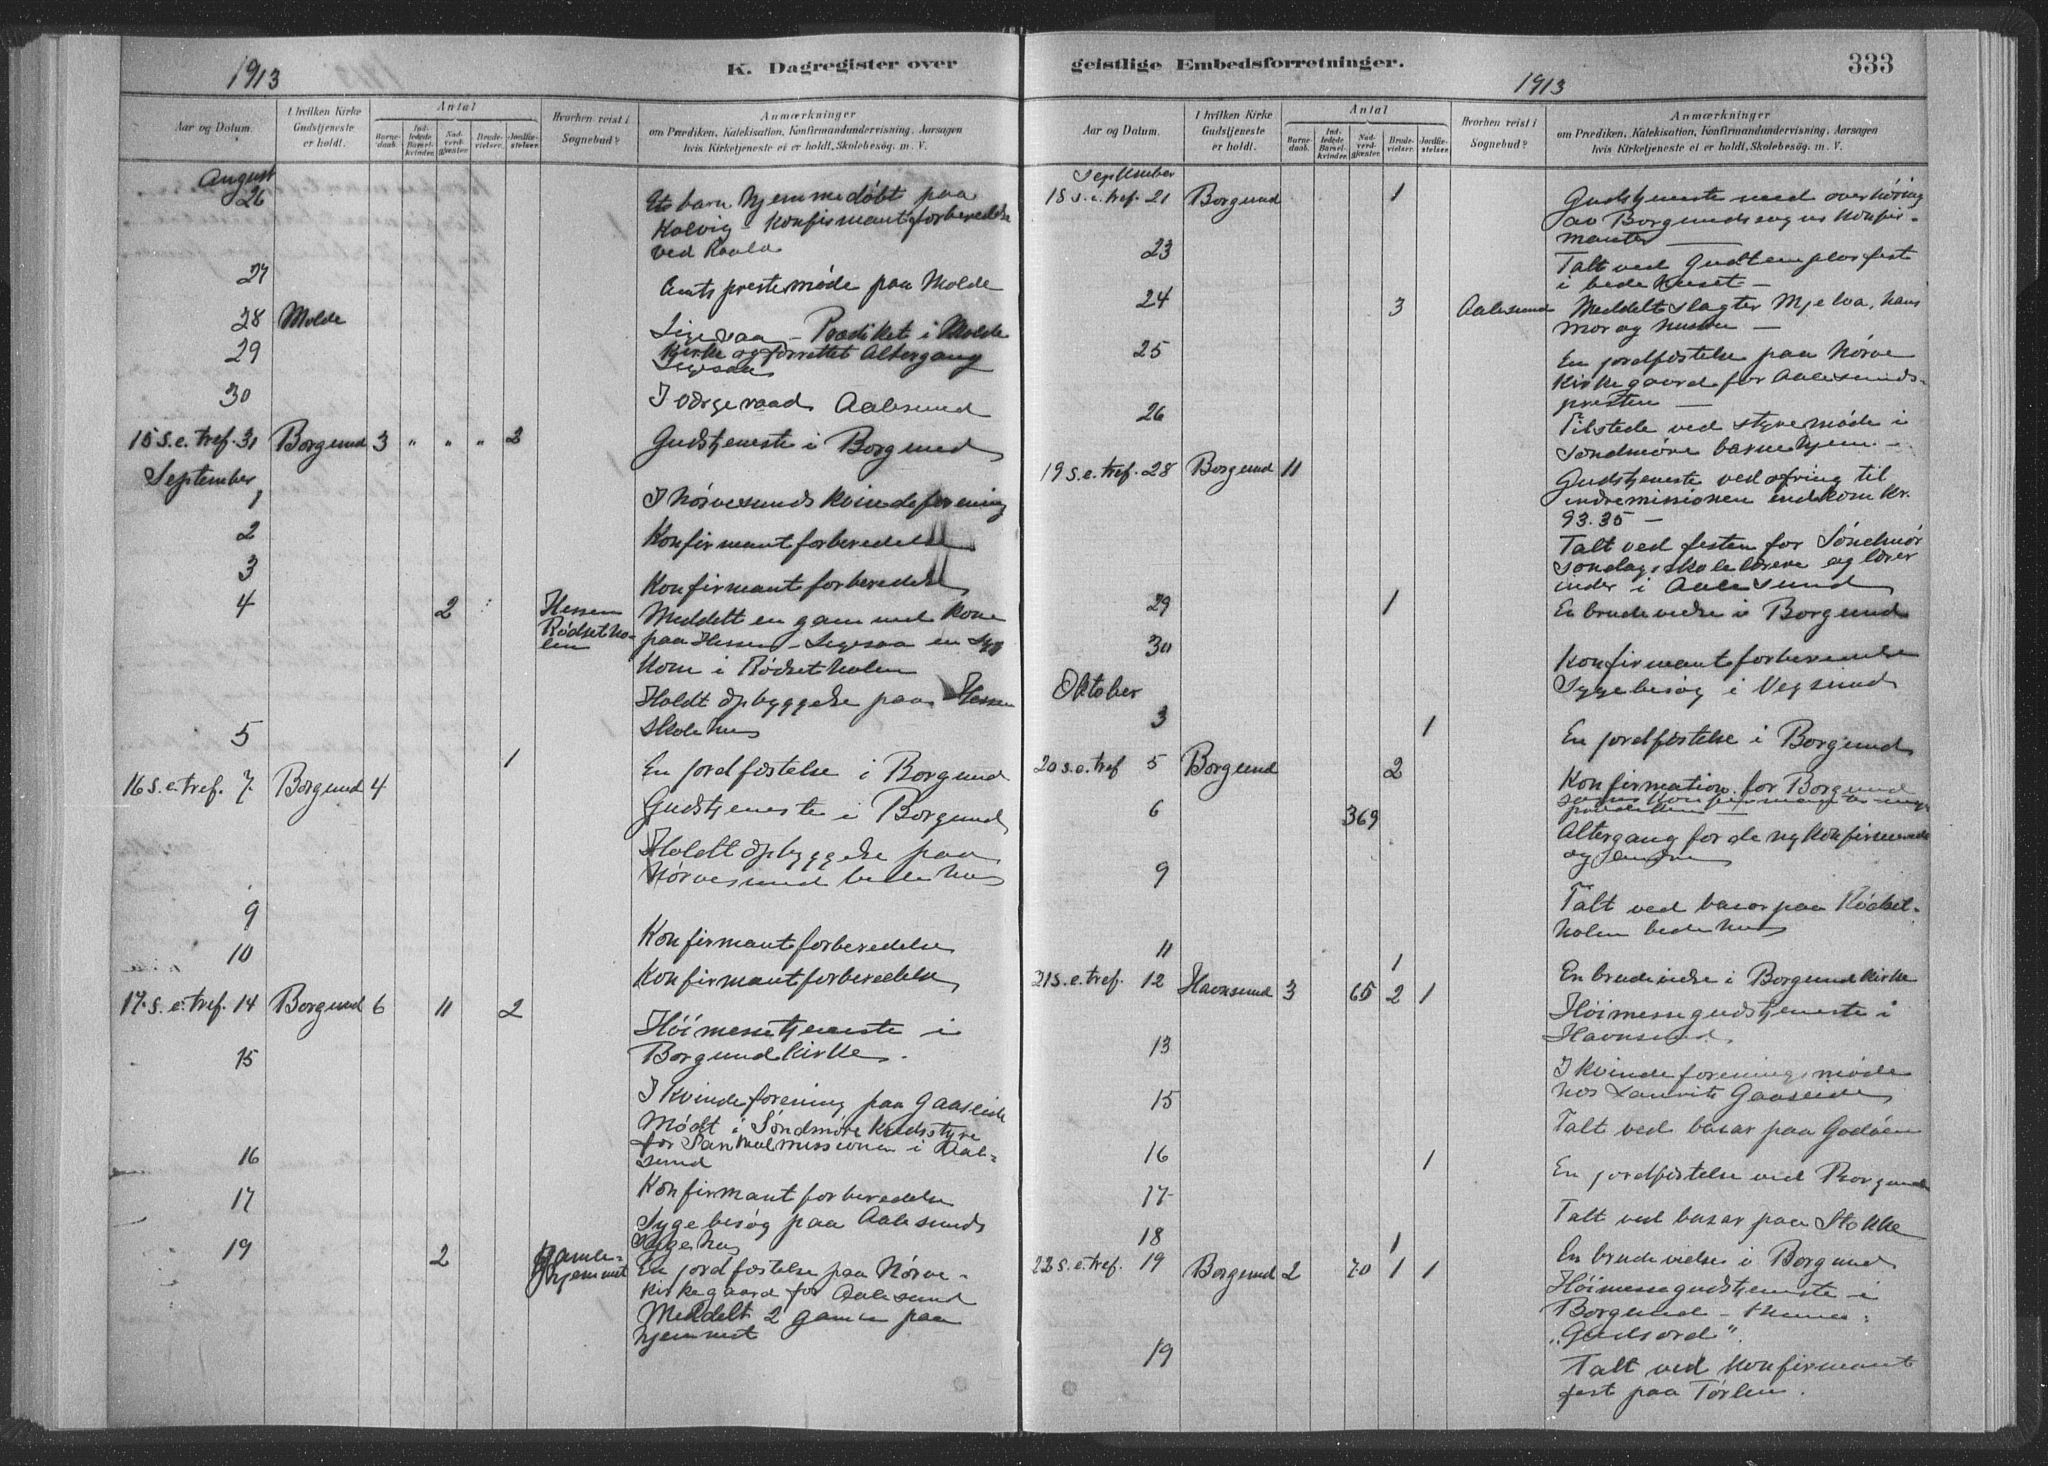 1913
K. Dagregister over
Aar og Datum.
I hvilken Kirke Gudstjeneste er holdt.
Antal
Barne-daab.
Ind-ledede Barsel-kvinder.
Nad-verd-gjæster.
Brude-vielser.
Jordfæ-stelser.
Hvorhen reist i Sognebud?
Anmærkninger
om Prædiken, Katekisation, Konfirmandundervisning, Aarsagen
hvis Kirketjeneste ei er holdt, Skolebesøg. m. V.
August
26 Et barn hjemmedøbt paa
Kalvig - Konfirmantforberedelse
ved Raala
27 Amts prestemøde paa Molde
28 Molde Ligesaa - Prædiket i Molde
Kirke og forrettet Altergang
29 Ligesaa
30 I værgeraad Aalesund
15 s.e. tref. 31 Borgund 3 " " " 2 Gudstjeneste i Borgund
September
1 I Nørvesunds Kvindeforening
2 Konfirmantforberedelse
3 Konfirmantforberedelse
4 2 Hessen Rødsetho-len Meddelt en gammel Kone
paa Hessen - Ligesaa en syg
Kone i Rødsetholen
Holdt opbyggelse paa Hessen
skolehus
5 1 En jordfæstelse i Borgund
16 s.e. tref. 7. Borgund 4 Gudstjeneste i Borgund
Holdt opbyggelse paa
Nørvesund bedehus
9 Konfirmantforberedelse
10 Konfirmantforberedelse
17. s.e. tref. 14 Borgund 6 11 2 Høimessetjeneste i
Borgund Kirke.
15 I Kvindeforening paa Gaaseide
Mødt i Søndmøre Kredsstyre
for Santalmissionen i Aale-
sund
16 Konfirmantforberedelse
17 Sygebesøg paa Aalesunds
Sygehus
19 2 Gamle-hjemmet En jordfæstelse paa Nørve-
kirkegaard for Aalesund
Meddelt 2 gamle paa
hjemmet
geistlige Embedsforretninger.
333
1913
Aar og Datum.
I hvilken Kirke Gudstjeneste er holdt.
Antal
Barne-daab.
Ind-ledede Barsel-kvinder.
Nad-verd-gjæster.
Brude-vielser.
Jordfæ-stelser.
Hvorhen reist i Sognebud?
Anmærkninger
om Prædiken, Katekisation, Konfirmandundervisning, Aarsagen
hvis Kirketjeneste ei er holdt, Skolebesøg. m. V.
September
18 s.e. tref. 21 Borgund 1 Gudstjeneste med overhøring
av Borgunds sogns Konfir-
manter
23 Talt ved Godtemplarfest
i bedehuset -
24 3 Aalesund Meddelt slagter Mjelva, hans
mor og hustru -
25 En jordfæstelse paa Nørve
Kirkegaard for Aalesunds-
presten -
26 Tilstede ved styremøde i
Søndmøre barnehjem -
19 s.e. tref. 28 Borgund 11 Gudstjeneste ved ofring til
indremissionen indkom Kr.
93.35 -
Talt ved festen for Søndmør
søndagsskolelærere og lærer
inder i Aalesund
29 1 En brudevielse i Borgund
30 Konfirmantforberedelse
Sygebesøg i Vegsund
Oktober
3 1 En jordfæstelse i Borgund
20 s.e. tref 5 Borgund 2 Konfirmation for Borgund
sogns Konfirmanter
6 369 Altergang for de nykonfirmerede
og andre
9 Talt ved basar paa Rødset-
holen bedehus
11 1 En brudevielse i Borgund Kirke
21 s.e. tref. 12 Havnsund 3 65 2 1 Høimessegudstjeneste i
Havnsund.
13 I Kvindeforeningsmøde
hos Laurits Gaaseide
15 Talt ved basar paa Godøen
16 1 En jordfæstelse ved Borgund
17 Talt ved basar paa Stokke
18 1 En brudevielse i Borgund
22 s.e. tref. 19 Borgund 2 70 1 1 Høimessegudstjeneste i
Borgund - thema:
"Guds ord".
19 Talt ved Konfirmant
fest paa Tørlen.